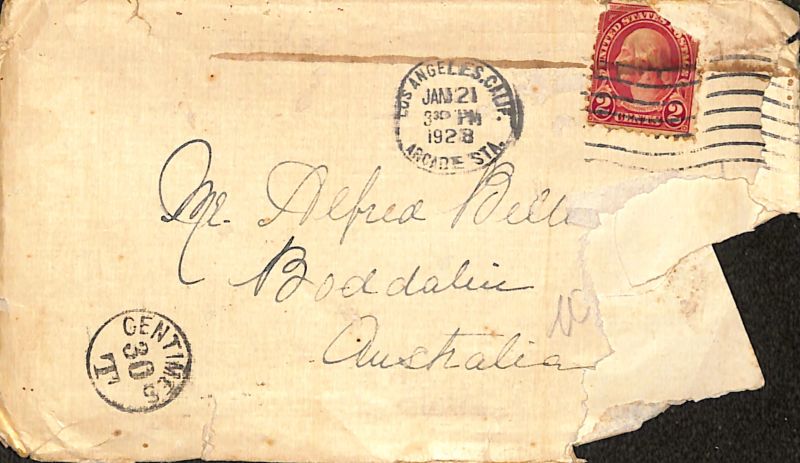 LOS ANGELES, CALIF.
JAN 21
3 30 PM
1928
ARCADE STA.
UNITED STATES POSTAGE
2 2
CENTS
Mr. Alfred Bell
Boddalin
Australia
CENTIMES
30
T